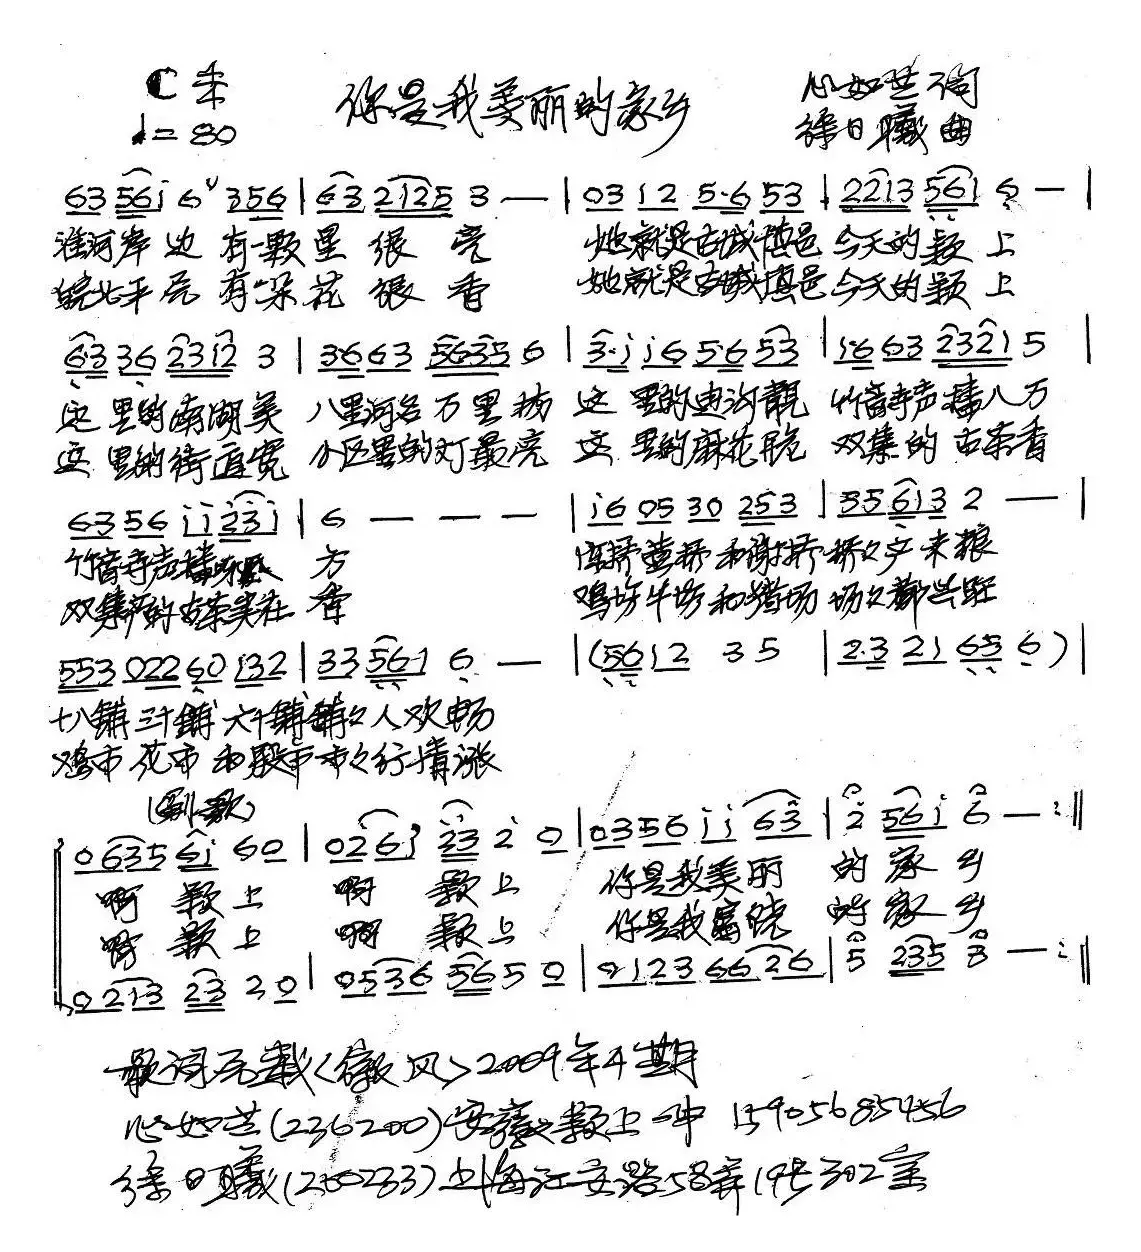 C 4/4
♩=80
你是我美丽的家乡
心如芷 词
徐日曦 曲
63 56i 6 356 | 63 2125 3 — | 03 i2 5·6 53 | 2213 561 6 — |
淮河岸边 有一颗星 很 亮 她就是古城慎邑 今天的颍 上
皖北平原 有一朵花 很 香 她就是古城慎邑 今天的颍 上
6·3 36 2312 3 | 3·6 63 5635 6 | 3·i i6 5·6 53 | i·6 63 2321 5 |
这 里的南湖美 八里河名万里扬 这 里的迪沟靓 竹音寺声播八方
这 里的街道宽 小区里的灯最亮 这 里的麻花脆 双集的古茶香
63 56 ii 23i | 6 — — — | i6 05 30 253 | 35 613 2 — |
竹音寺声播 方 和谢桥 桥々产米粮
双集的古茶实在 香 鸡场牛场和猪场 场々都兴旺
553 022 60 132 | 33 56·1 6 — | (56 12 3 5 | 2·3 21 65 6) |
十八铺 三十铺 六十铺 铺々人欢畅
鸡市 花市 和股市 市々行情涨
(副歌)
0635 6i 60 | 026i 23 2 0 | 0356 ii 63 | 2 56i 6 — :‖
啊 颍上 啊 颍上 你是我美丽 的 家 乡
啊 颍上 啊 颍上 你是我富饶 的 家 乡
0213 23 20 | 0536 56 5 0 | 0123 66 26 | 5 235 3 — :‖
歌词原载《徽风》2009年4期
心如芷(236200)安徽颍上一中 15905685456
徐日曦(200233)上海江安路58弄19号302室